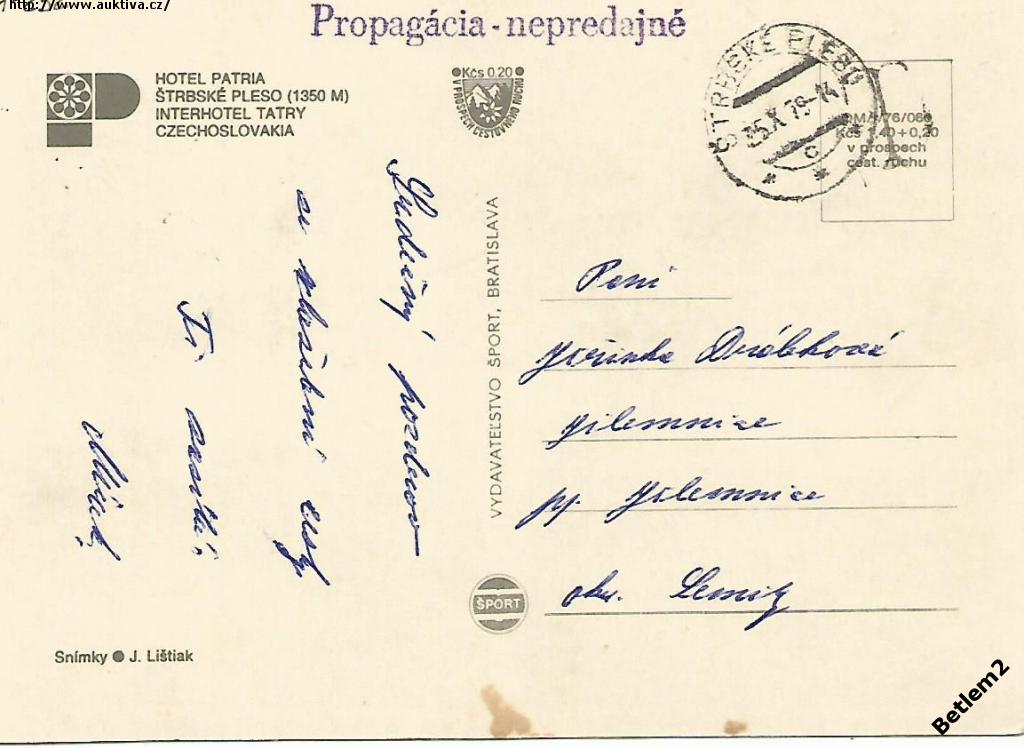 http://www.auktiva.cz/
Propagácia - nepredajné
HOTEL PATRIA
ŠTRBSKÉ PLESO (1350 M)
INTERHOTEL TATRY
CZECHOSLOVAKIA
Kčs 0,20
V PROSPECH CESTOVNÉHO RUCHU
ŠTRBSKÉ PLESO
25.X.79-14
c
/76/06
Kčs 1,40+0,20
v prospech
cest. ruchu
Srdečný pozdrav
ze služební cesty
Ti zasílá
VYDAVATEĽSTVO ŠPORT, BRATISLAVA
Paní
Jiřinka Drábková
Jilemnice
pp. Jilemnice
okr. Semily
ŠPORT
Snímky ● J. Lištiak
Betlem2